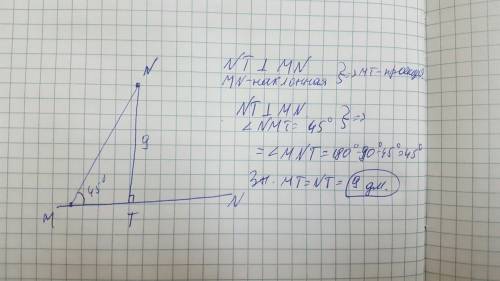 N
9
45°
M
T
N
NT ⊥ MN
MN-наклонная } => MT-проекц.
NT ⊥ MN
∠NMT = 45° } =>
= ∠MNT = 180°-90°-45°=45°
Зн. MT = NT = 9 дм.